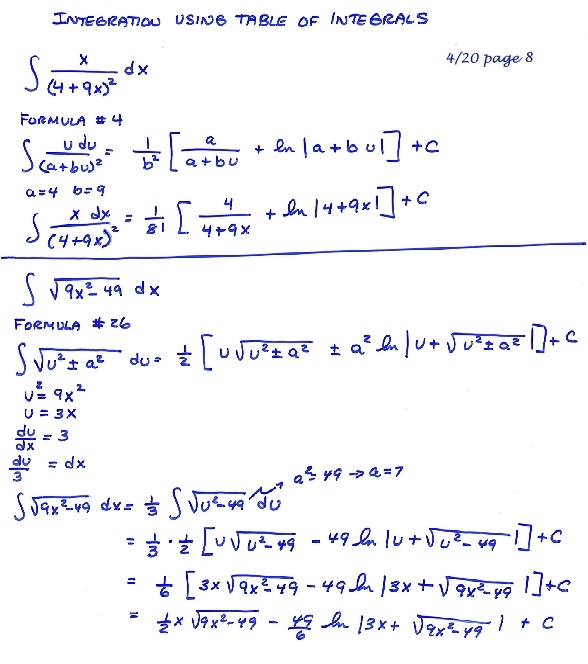 INTEGRATION USING TABLE OF INTEGRALS
4/20 page 8
∫ x/(4+9x)² dx
FORMULA # 4
∫ u du/(a+bu)² = 1/b² [ a/(a+bu) + ln |a+bu| ] + C
a=4 b=9
∫ x dx/(4+9x)² = 1/81 [ 4/(4+9x) + ln |4+9x| ] + C
∫ √(9x²-49) dx
FORMULA # 26
∫ √(u² ± a²) du = 1/2 [ u√(u² ± a²) ± a² ln |u + √(u² ± a²)| ] + C
u² = 9x²
u = 3x
du/dx = 3
du/3 = dx
a² = 49 → a = 7
∫ √(9x²-49) dx = 1/3 ∫ √(u²-49) du
= 1/3 · 1/2 [ u√(u²-49) - 49 ln |u + √(u²-49)| ] + C
= 1/6 [ 3x √(9x²-49) - 49 ln |3x + √(9x²-49)| ] + C
= 1/2 x √(9x²-49) - 49/6 ln |3x + √(9x²-49)| + C